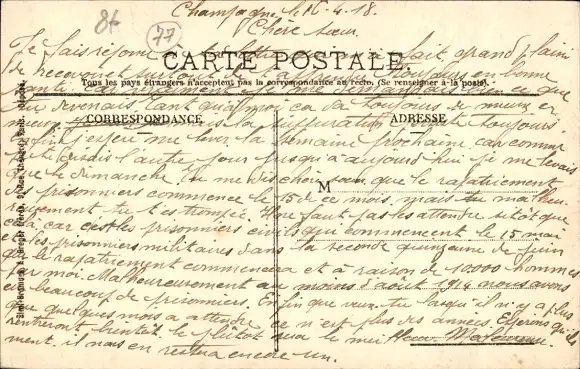 84
77
Champagne, le 16-4-18.
Chère Sœur.
Je fais réponse à ta lettre qui m'a fait grand plaisir
CARTE POSTALE
de recevoir toujours en bonne
Tous les pays étrangers n'acceptent pas la correspondance au recto. (Se renseigner à la poste).
santé ce que
tu devenais, tant qu'à moi ça va toujours de mieux en
CORRESPONDANCE
ADRESSE
mieux la suppuration toujours
enfin j'espère me lever la semaine prochaine car comme
je te disais l'autre jour jusqu'à aujourd'hui je me levais
que le dimanche. Tu me dis chère sœur que le rapatriement
M
des prisonniers commence le 15 de ce mois, mais malheu-
reusement tu t'es trompée. Il ne faut pas les attendre sitôt que
cela, car c'est les prisonniers civils qui commencent le 15 mai
et les prisonniers militaires dans la seconde quinzaine de juin
que le rapatriement commencera et à raison de 10000 hommes
par moi. Malheureusement au moins d'août 1914 nous avons
eu beaucoup de prisonniers. Enfin que veux-tu lorsqu'il n'y a plus
que quelques mois à attendre ce n'est plus des années. Espérons qu'ils
rentreront bientôt le plutôt sera le mieux
ment, il nous en restera encore un.